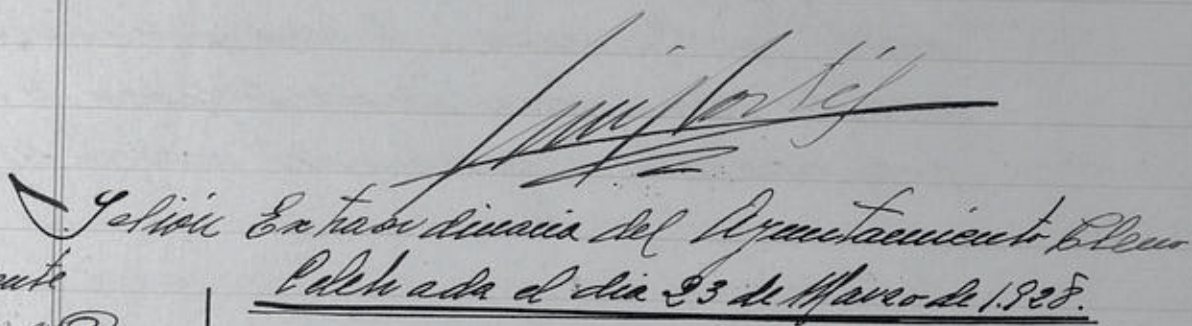 Luis Cortés
Sesión Extraordinaria del Ayuntamiento Pleno
Celebrada el dia 23 de Marzo de 1.928.